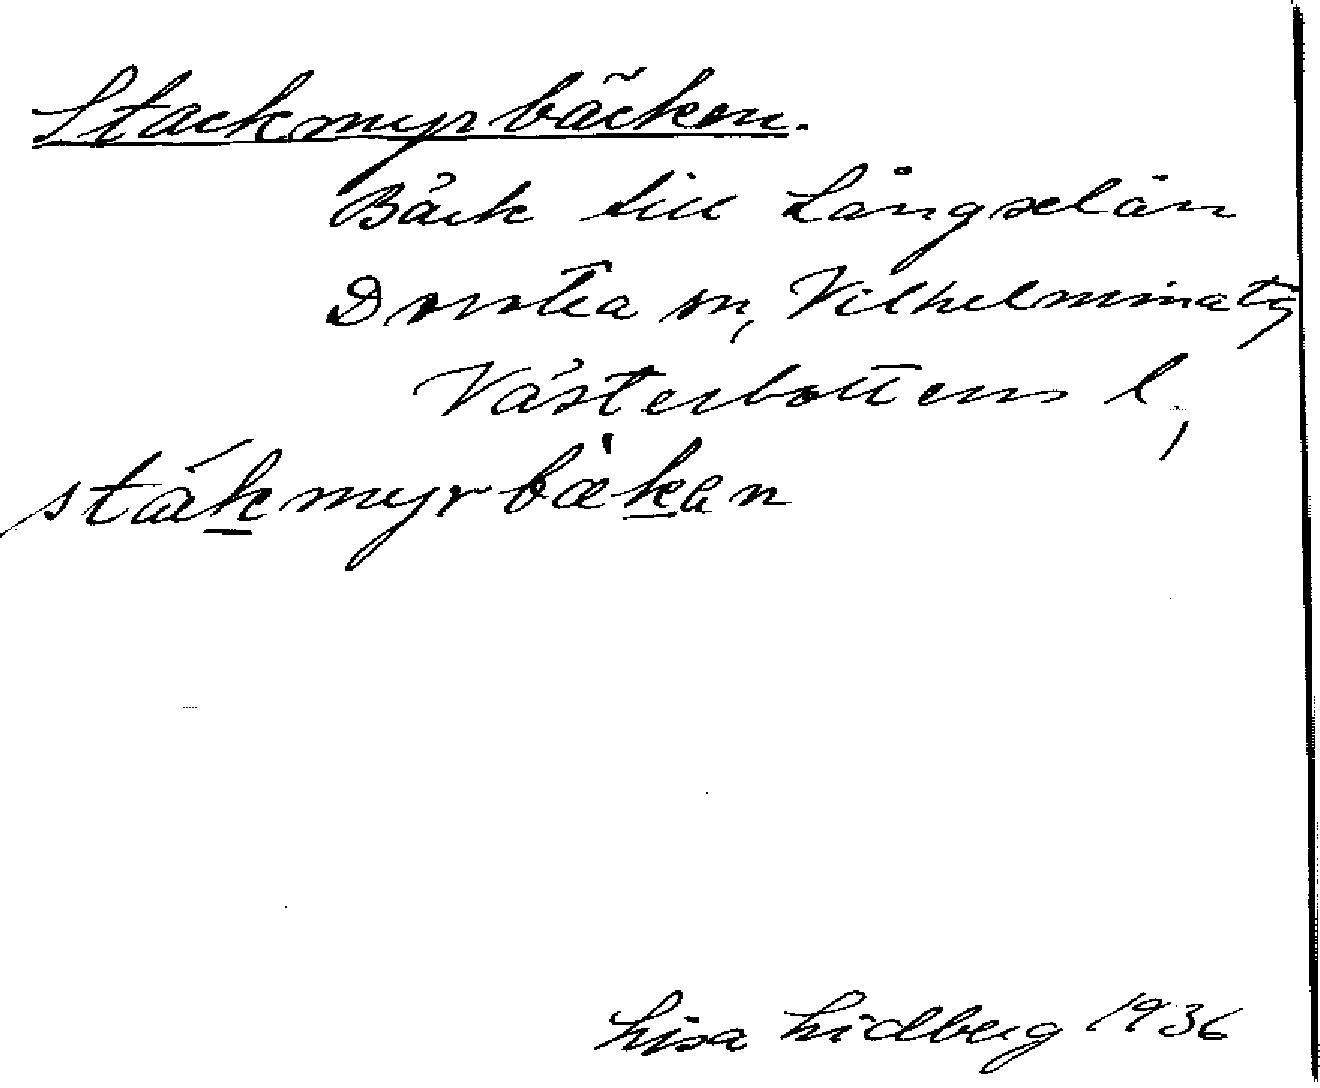 Stackmyrbäcken.
Bäck till Långselån
Dorotea sn, Vilhelmina tg
Västerbottens l,
stákmyrbækan
Lisa Lidberg 1936